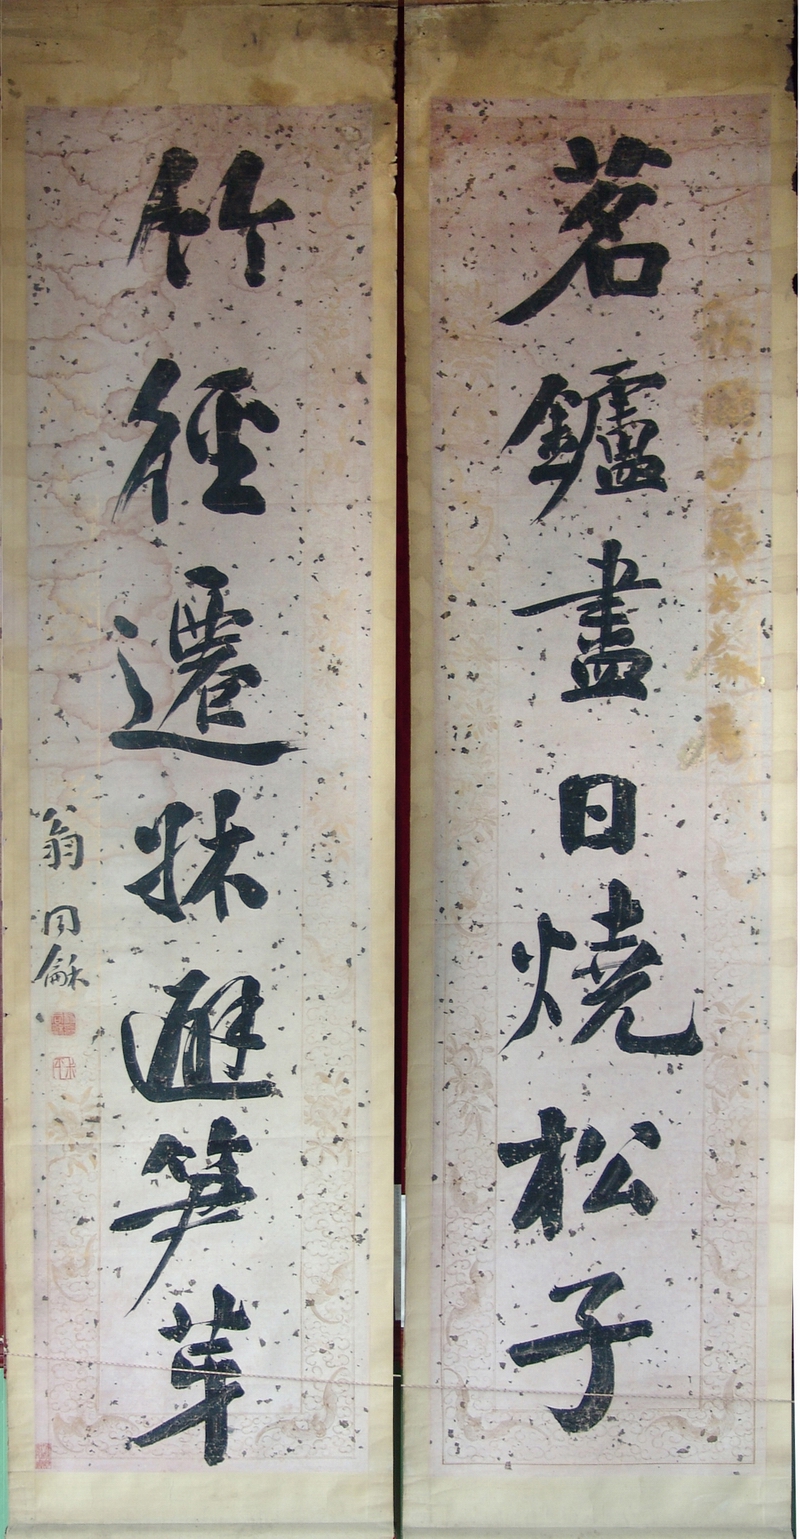 茗鑪盡日燒松子
竹徑遷牀避筍芽
翁同龢